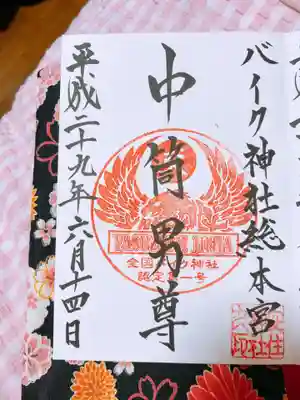 バイク神社総本宮
中筒男尊
全国バイク神社
認定第一号
平成二十九年六月十四日